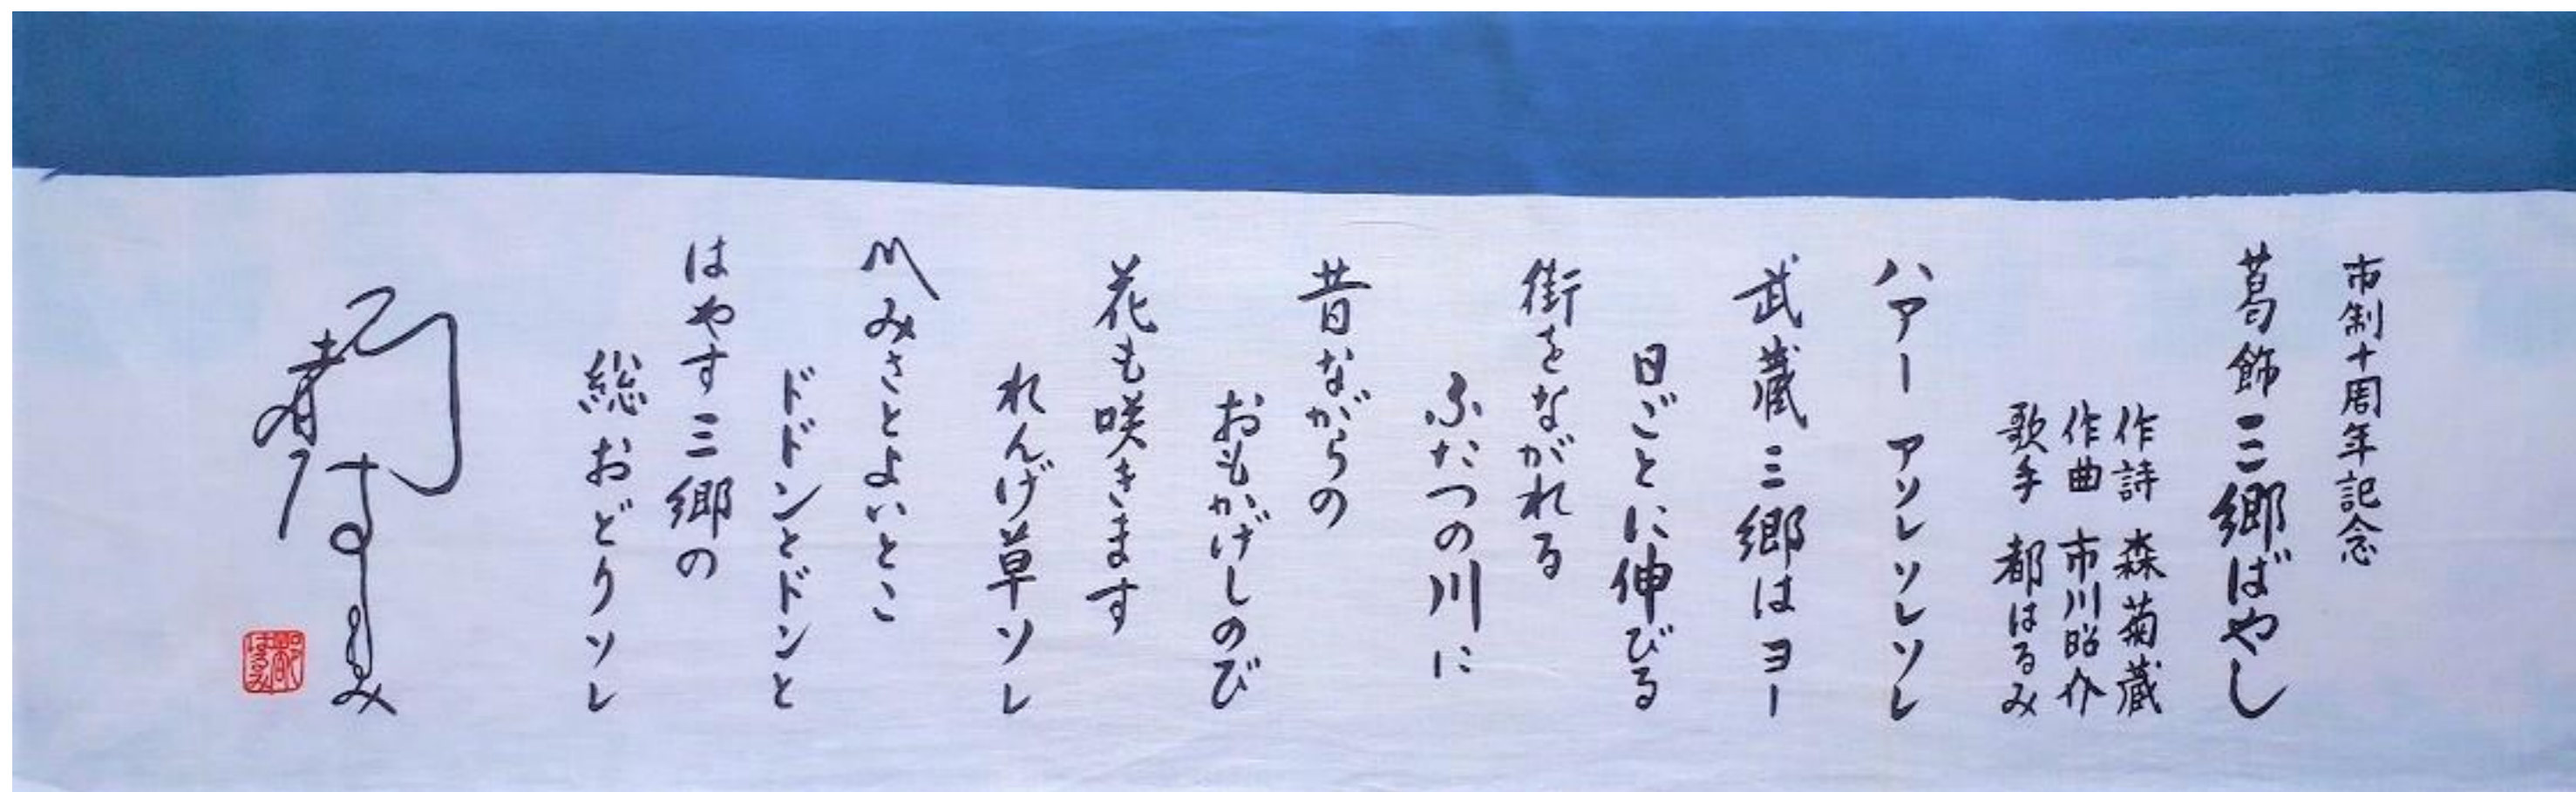 市制十周年記念
葛飾三郷ばやし
作詩 森菊蔵
作曲 市川昭介
歌手 都はるみ
ハアー アソレソレソレ
武蔵三郷はヨー
日ごとに伸びる
街をながれる
ふたつの川に
昔ながらの
おもかげしのび
花も咲きます
れんげ草ソレ
〽みさとよいとこ
ドドンとドンと
はやす三郷の
総おどりソレ
都はるみ
都はるみ